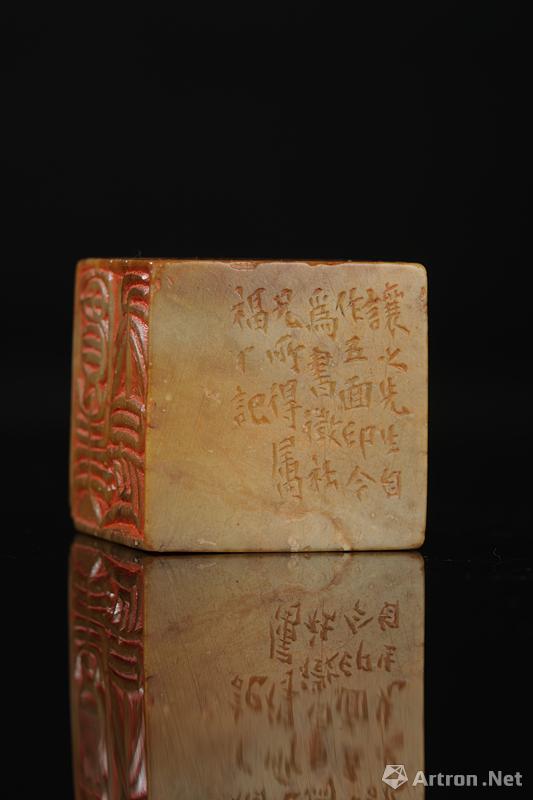 讓之先生自
作五面印今
為書徵社
兄所得屬
福厂記
Artron.Net